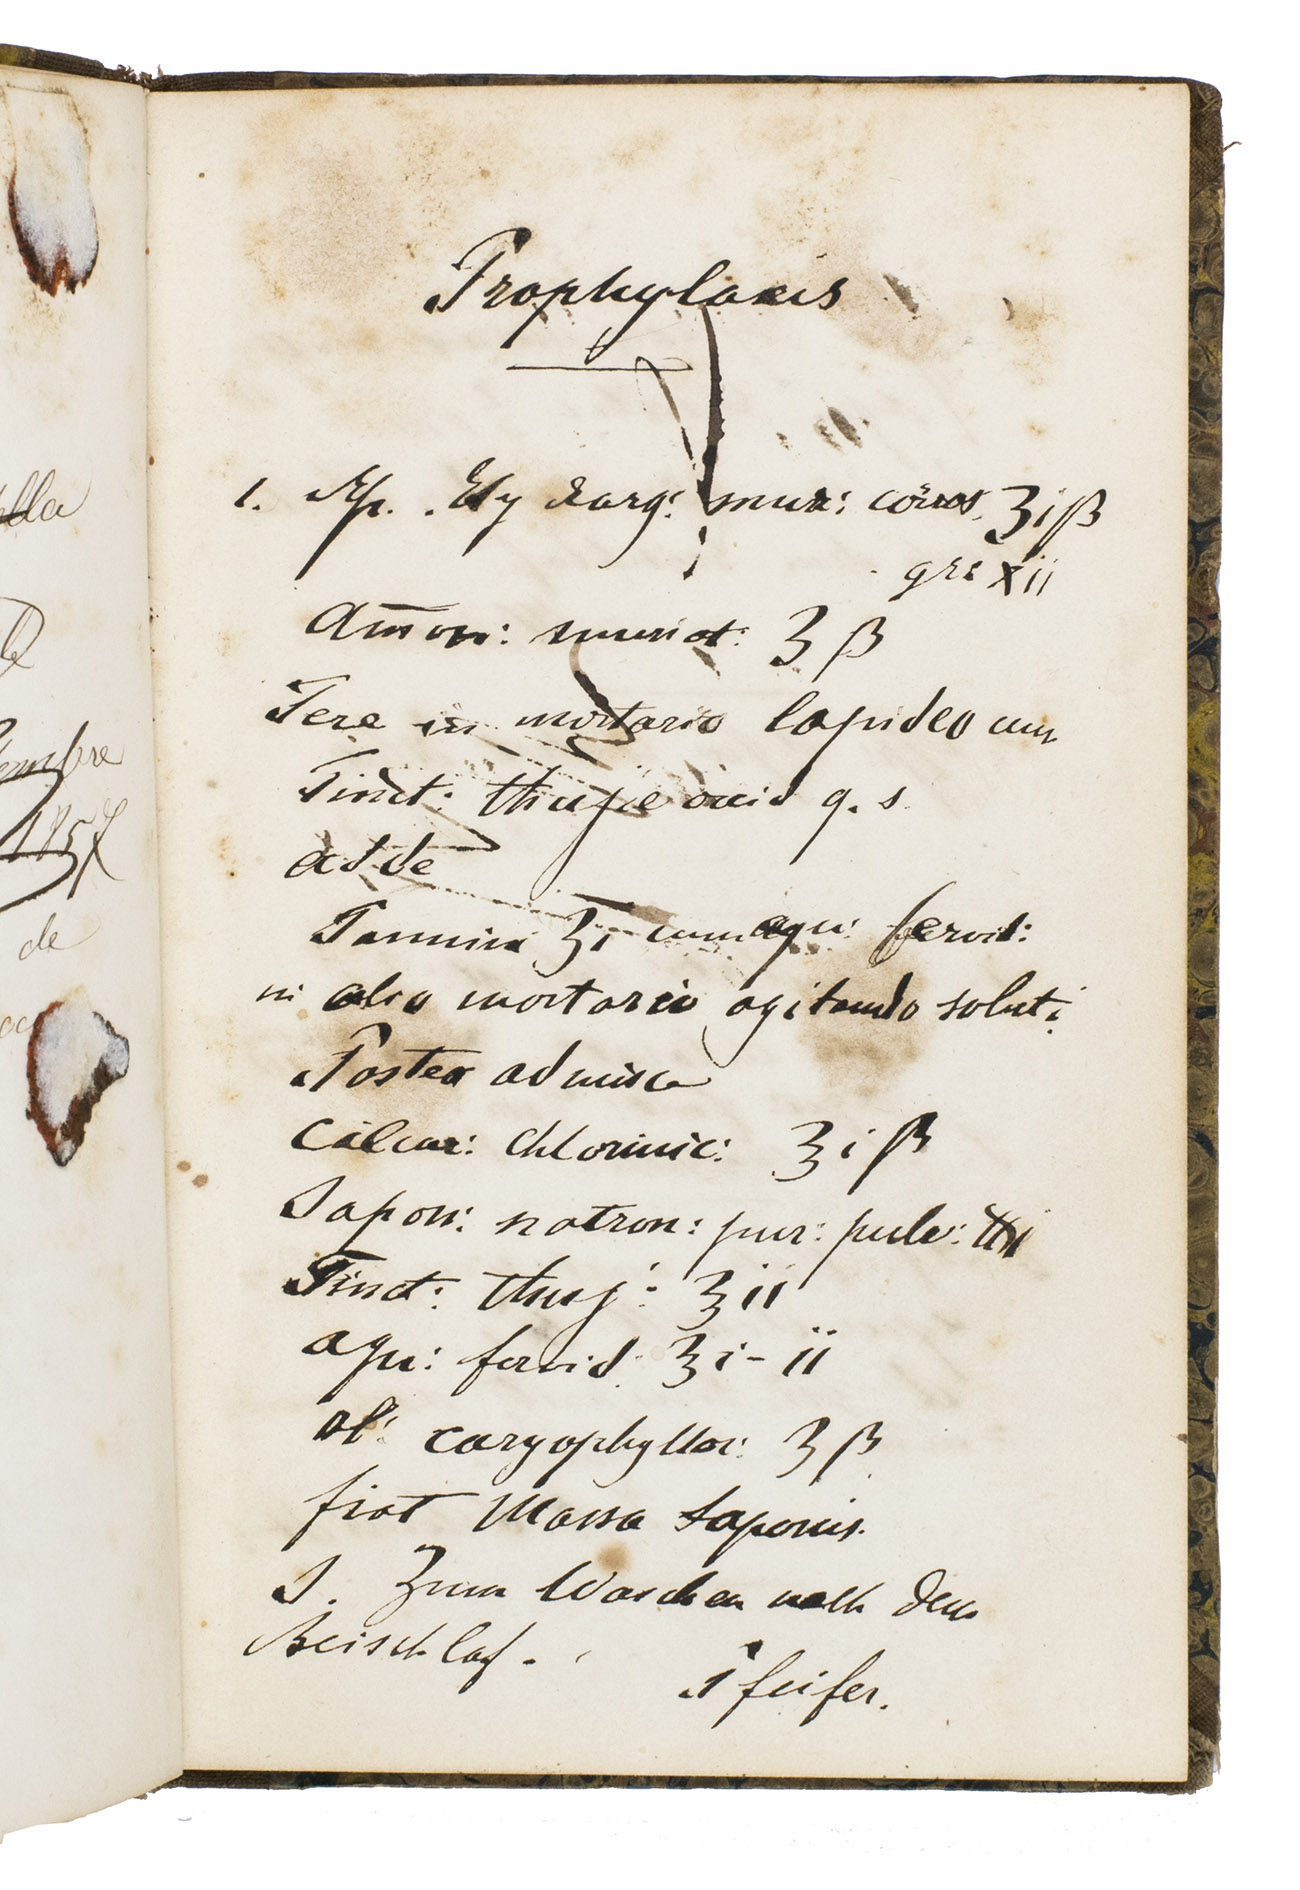 lla
embre
1857
de
Prophylaxis
1. Rp. Hydrarg: mur: corros. ʒiβ
grs xii
Am̄on: muriat: ʒβ
Tere in mortario lapideo cum
Tinct: thujæ occid q. s.
adde
Tannini ʒi cum aqu: fervid:
in alio mortario agitando soluti
Postea admisce
Calcar: chlorinic: ʒiβ
Sapon: natron: pur: pulv: ℔i
Tinct: thuj: ʒii
aqu: fervid. ʒi-ii
ol: caryophyllor: ʒβ
fiat Massa saponis.
S. Zum Waschen nach dem
Beischlaf.
Pfeifer.